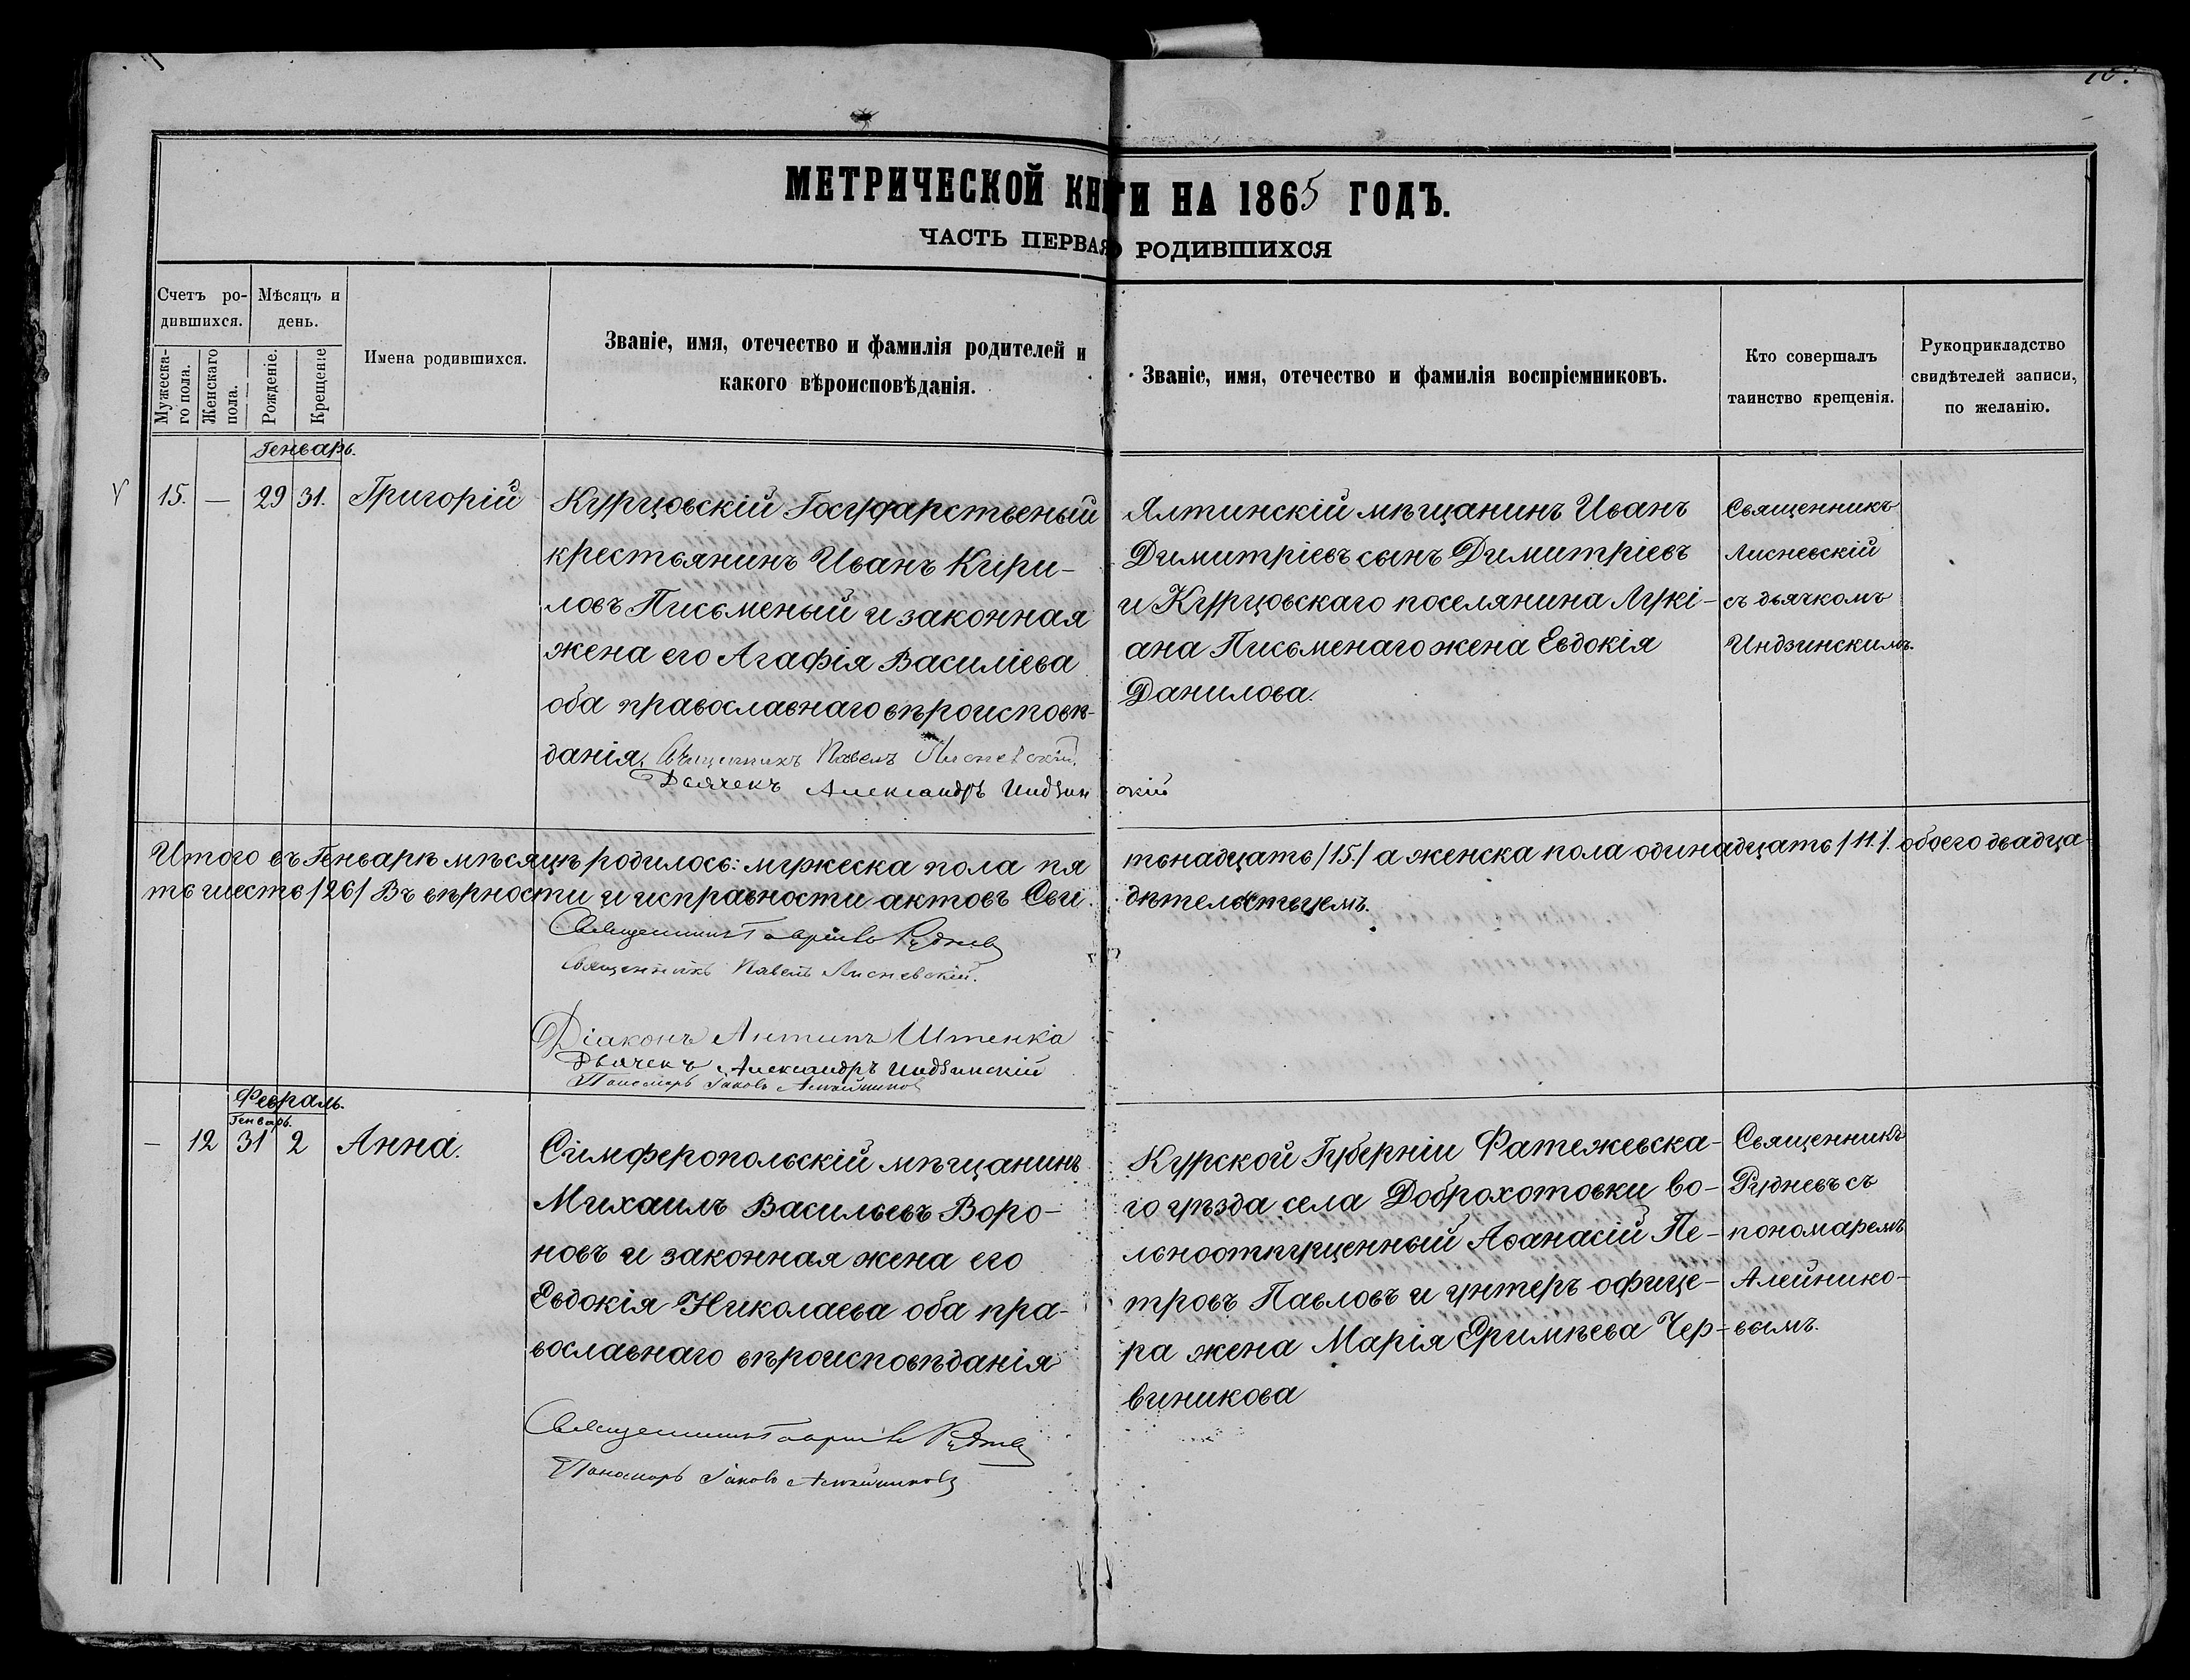 10.
МЕТРИЧЕСКОЙ КНИГИ НА 1865 ГОДЪ.
ЧАСТЬ ПЕРВАЯ О РОДИВШИХСЯ
Счетъ ро-
дившихся.
Мужеска-
го пола.
Женскаго
пола.
Мѣсяцъ и
день.
Рожденіе.
Крещеніе
Имена родившихся.
Званіе, имя, отечество и фамилія родителей и
какого вѣроисповѣданія.
Званіе, имя, отечество и фамилія воспріемниковъ.
Кто совершалъ
таинство крещенія.
Рукоприкладство
свидѣтелей записи,
по желанію.
Генварь.
15. — 29 31. Григорій
Курцовскій Государственый
крестьянинъ Иванъ Кири-
ловъ Письменый и законная
жена его Агафія Василіева
оба православнаго вѣроисповѣ-
данія. Священникъ Павелъ Лисневскій.
Дьячекъ Александръ Индзинскій
Ялтинскій мѣщанинъ Иванъ
Димитріевъ сынъ Димитріевъ
и Курцовскаго поселянина Лукі-
ана Письменаго жена Евдокія
Данилова.
Священникъ
Лисневскій
съ дьячкомъ
Индзинскимъ.
Итого въ Генварѣ мѣсяцѣ родилось: мужеска пола пятьнадцать /15./ а женска пола одинадцать /11./. обоего двадца-
ть шесть /26/ Въ вѣрности и исправности актовъ Свидѣтельствуемъ.
Священникъ Гавріилъ Рудневъ
Священникъ Павелъ Лисневскій.
Діаконъ Антипъ Штенка
Дьячекъ Александръ Индзинскій
Паномарь Іаковъ Алейниковъ
Февраль.
Генварь.
— 12 31 2 Анна.
Симферопольскій мѣщанинъ
Михаилъ Васильевъ Воро-
новъ и законная жена его
Евдокія Николаева оба пра-
вославнаго вѣроисповѣданія
Священникъ Гавріилъ Рудневъ
Паномарь Іаковъ Алейниковъ
Курской Губерніи Фатежевска-
го уѣзда села Доброхотовки во-
льноотпущенный Аѳанасій Пе-
тровъ Павловъ и унтеръ офице-
ра жена Марія Еримѣева Чер-
виникова
Священникъ
Рудневъ съ
пономаремъ
Алейнико-
вымъ.